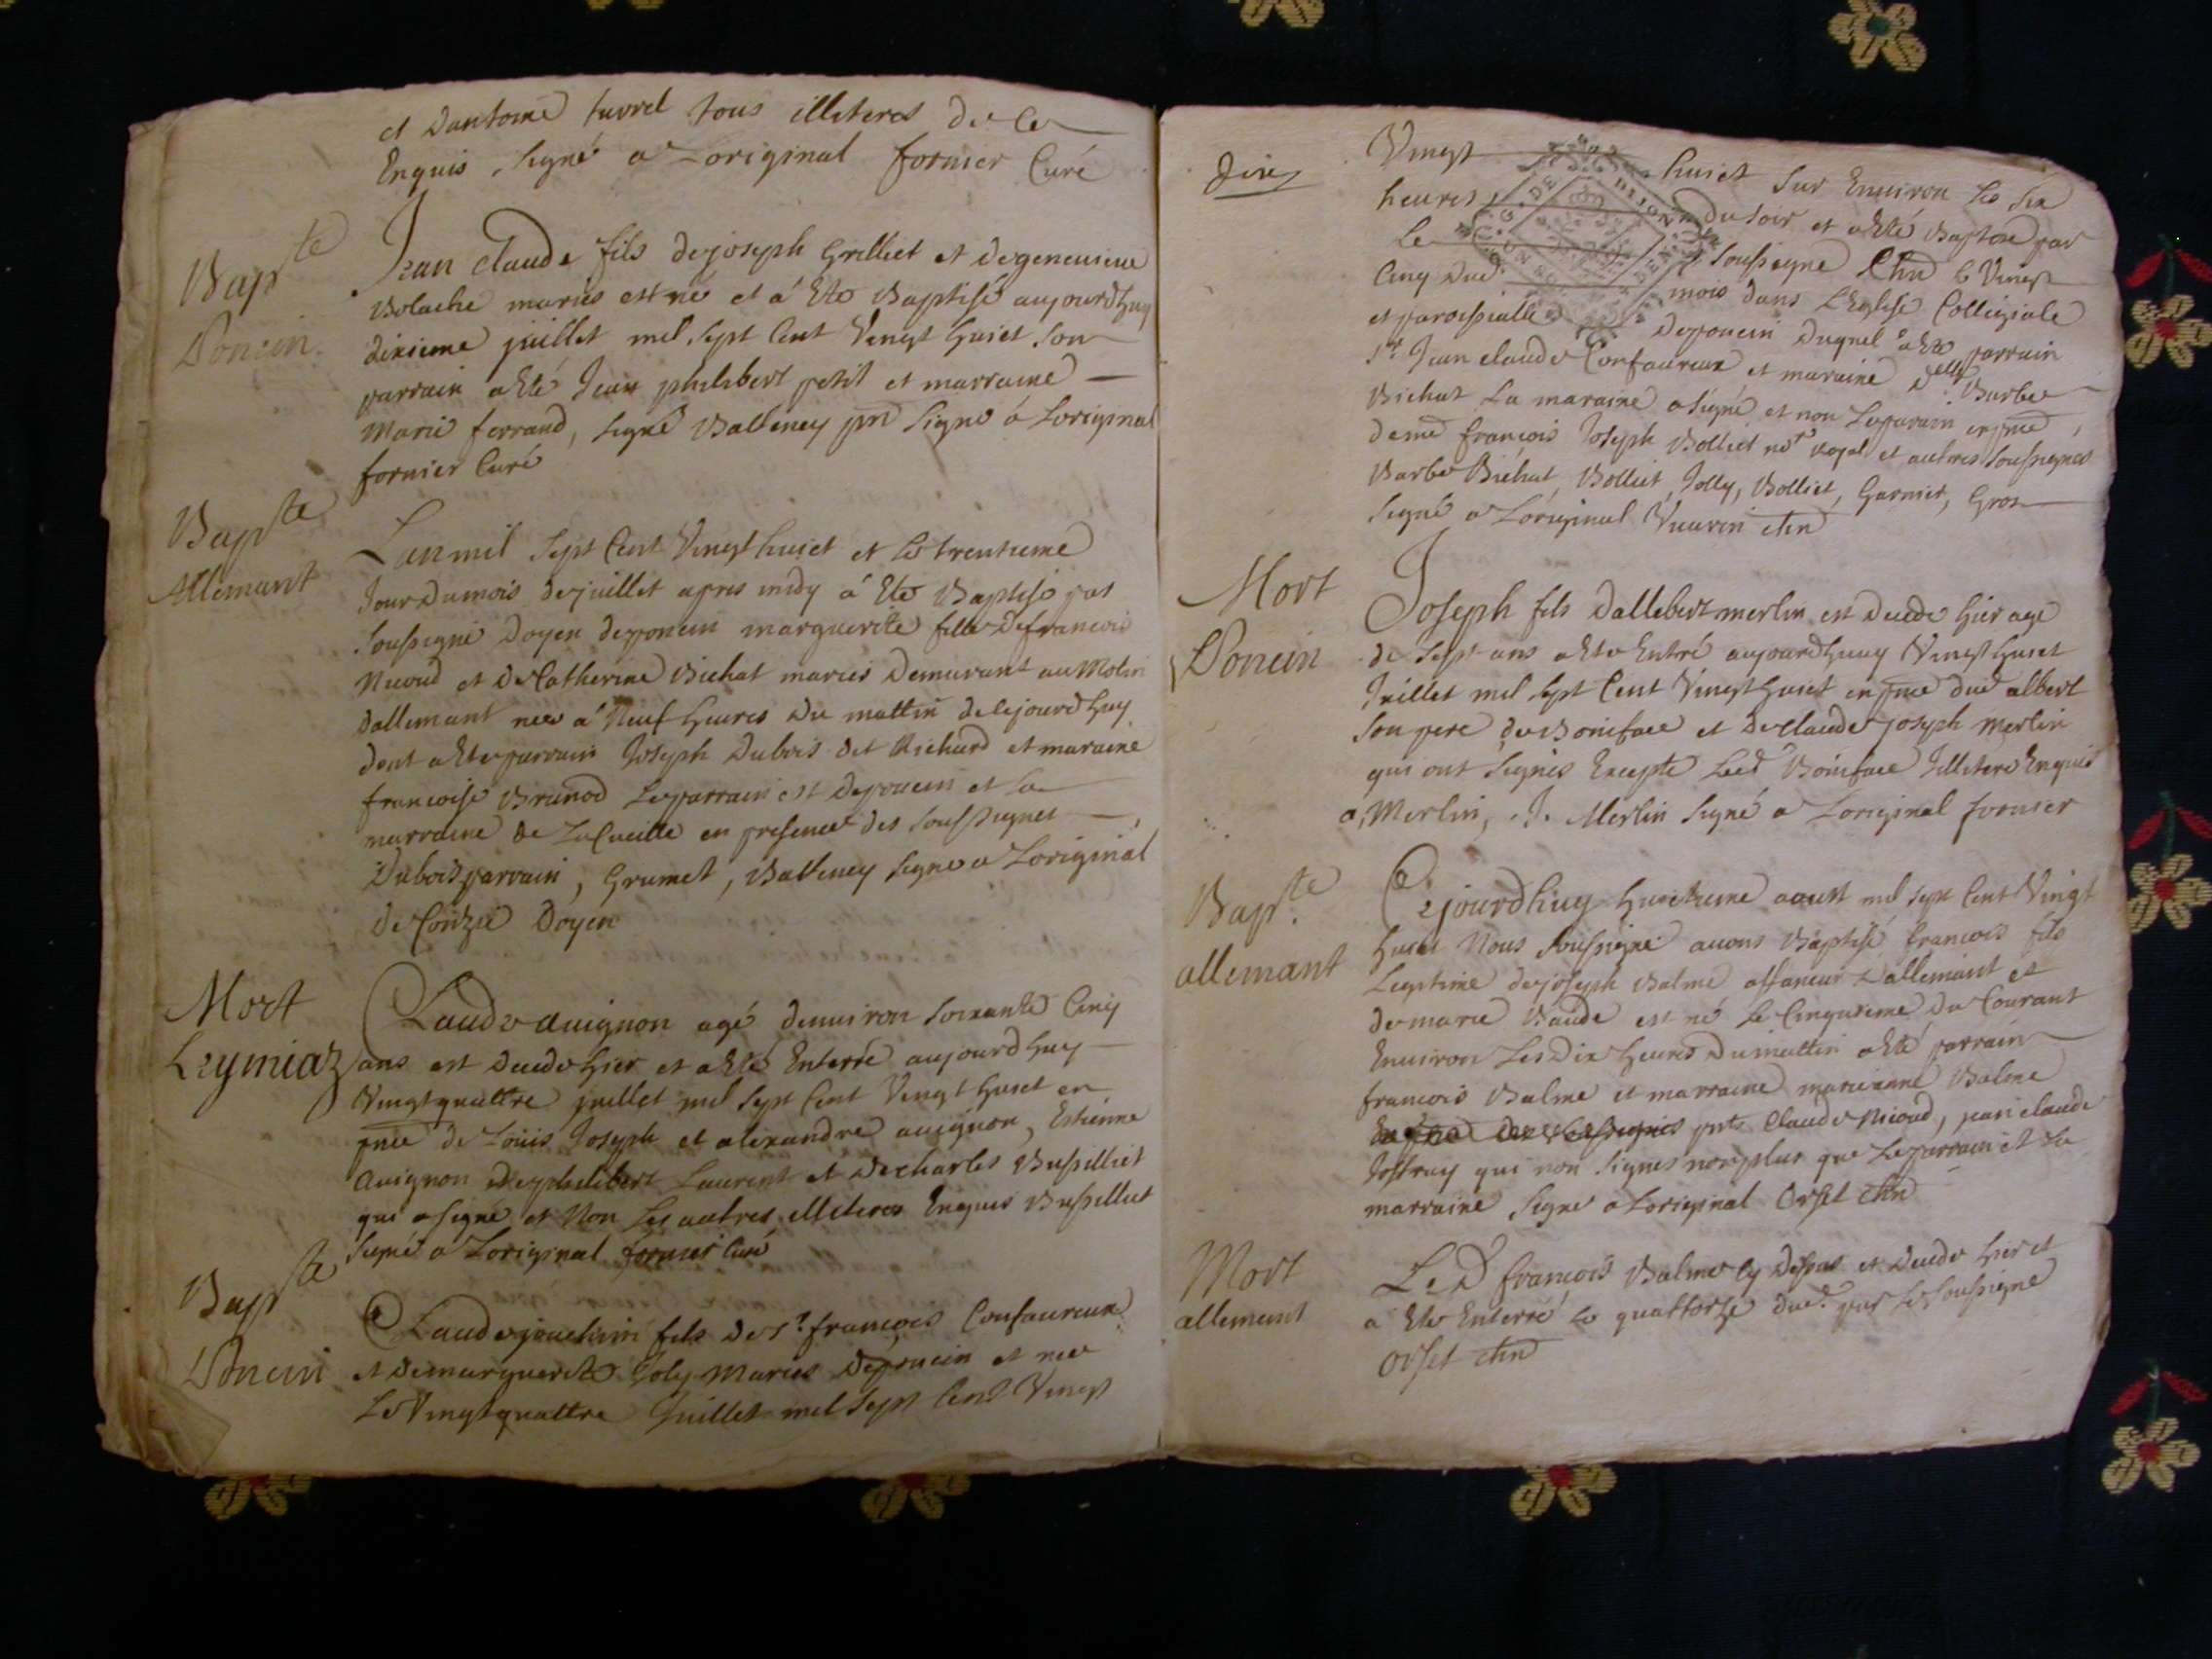 et Dantoine tuvrel tous illiteres de ce
Enquis, Signé a Loriginal fornier Curé
Bapte
Poncin
Jean claude fils dejoseph Grilliet et degenevieve
Bolache mariés est né et á Eté Baptisé aujourdhuy
dixieme juillet mil sept Cent Vingt huict son
parrain aEté Jean philibert petit et marraine
Marie ferrand, signé Balleney pnt Signé á Loriginal
fornier Curé
Bapte
Allemant
Lanmil Sept Cent Vingt huict et le trentieme
Jour Dumois dejuillet apres midy á Eté Baptisé par
soussigné Doyen deponcin marguerite fille Defrancois
Nicoud et De Catherine Bichat mariés Demurant au Molin
dallemant née á Neuf heures Du mattin decejourdhuy
dont aEté parrain Joseph Dubois dit Richard et maraine
francoise Brunod Leparrain est Deponcin et la
marraine de LaCueille en presence des soussignes
Dubois parrain, Grumet, Balleney Signé a Loriginal
de Conzié Doyen
Mort
Leymiaz
Claude avignon agé denviron soixante Cinq
ans est decede hier et aEté Enterré aujourdhuy
Vingtquattre juillet mil sept Cent Vingt huict en
pnce de Loüis Joseph et alexandre avignon, Estienne
avignon Dephilibert Laurent et Decharles Bussilliet
qui a signé et Non Les autres illiteres Enquis Bussilliet
Signé a Loriginal fornier Curé
Bapte
Poncin
Claudejoachim fils de sr. francois Confaureux
et Demarguerite Joly Mariés Deponcin et née
Le Vingtquattre Juillet mil Sept Cent Vingt
Dixe
Vingt huict sur Environ les six
heures du soir et aEté Baptisé par
Le soussigné Chn le Vingt
Cinq Dud. mois dans L'Eglise Collegiale
et paroissialle Deponcin Duquel aEté parrain
sr. Jean claude Confaureux et maraine delle Barbe
Bichat La maraine a signé et non Leparain en pnce
deme francois Joseph Bolliet nore royal et autres soussignes
Barbe Bichat, Bolliet, Jolly, Bolliet, Garnier, Gros
Signé a Loriginal Vuarin chn
Mort
Poncin
Joseph fils Dallebert merlin est decede hier agé
de sept ans aEté Entré aujourdhuy Vingt huict
Juillet mil Sept Cent Vingt huict en pnce dud albert
son pere de Boniface et De claude joseph Merlin
qui ont signés Excepte Led Boniface Illitere Enquis
a, Merlin, J. Merlin Signé a Loriginal fornier
Bapte
allemant
Cejourdhuy huictieme aoust mil sept Cent Vingt
huict Nous soussigné avons Baptisé francois fils
Legitime dejoseph Balme affaneur Dallemant et
demarie Baude est né Le Cinquieme Du Courant
Environ Les Dix heures Dumattin aEté parrain
francois Balme et marraine marieanne Balme
pnts Claude Nicoud, jean claude
Joffray qui non signés nonplus que Leparrain et La
marraine Signé a Loriginal Orset chn
Mort
allemant
Led francois Balme Cy Dessus et decede hier et
a Eté Enterré le quattorze dud. par Le soussigné
Orset chn